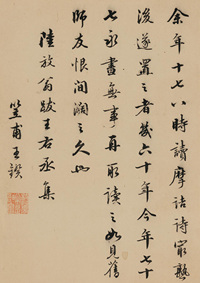 余年十七八時讀摩詰詩最熟
後遂置之者幾六十年今年七十
七永晝無事再取讀之如見舊
師友恨間濶之久也
陸放翁跋王右丞集
笠甫王